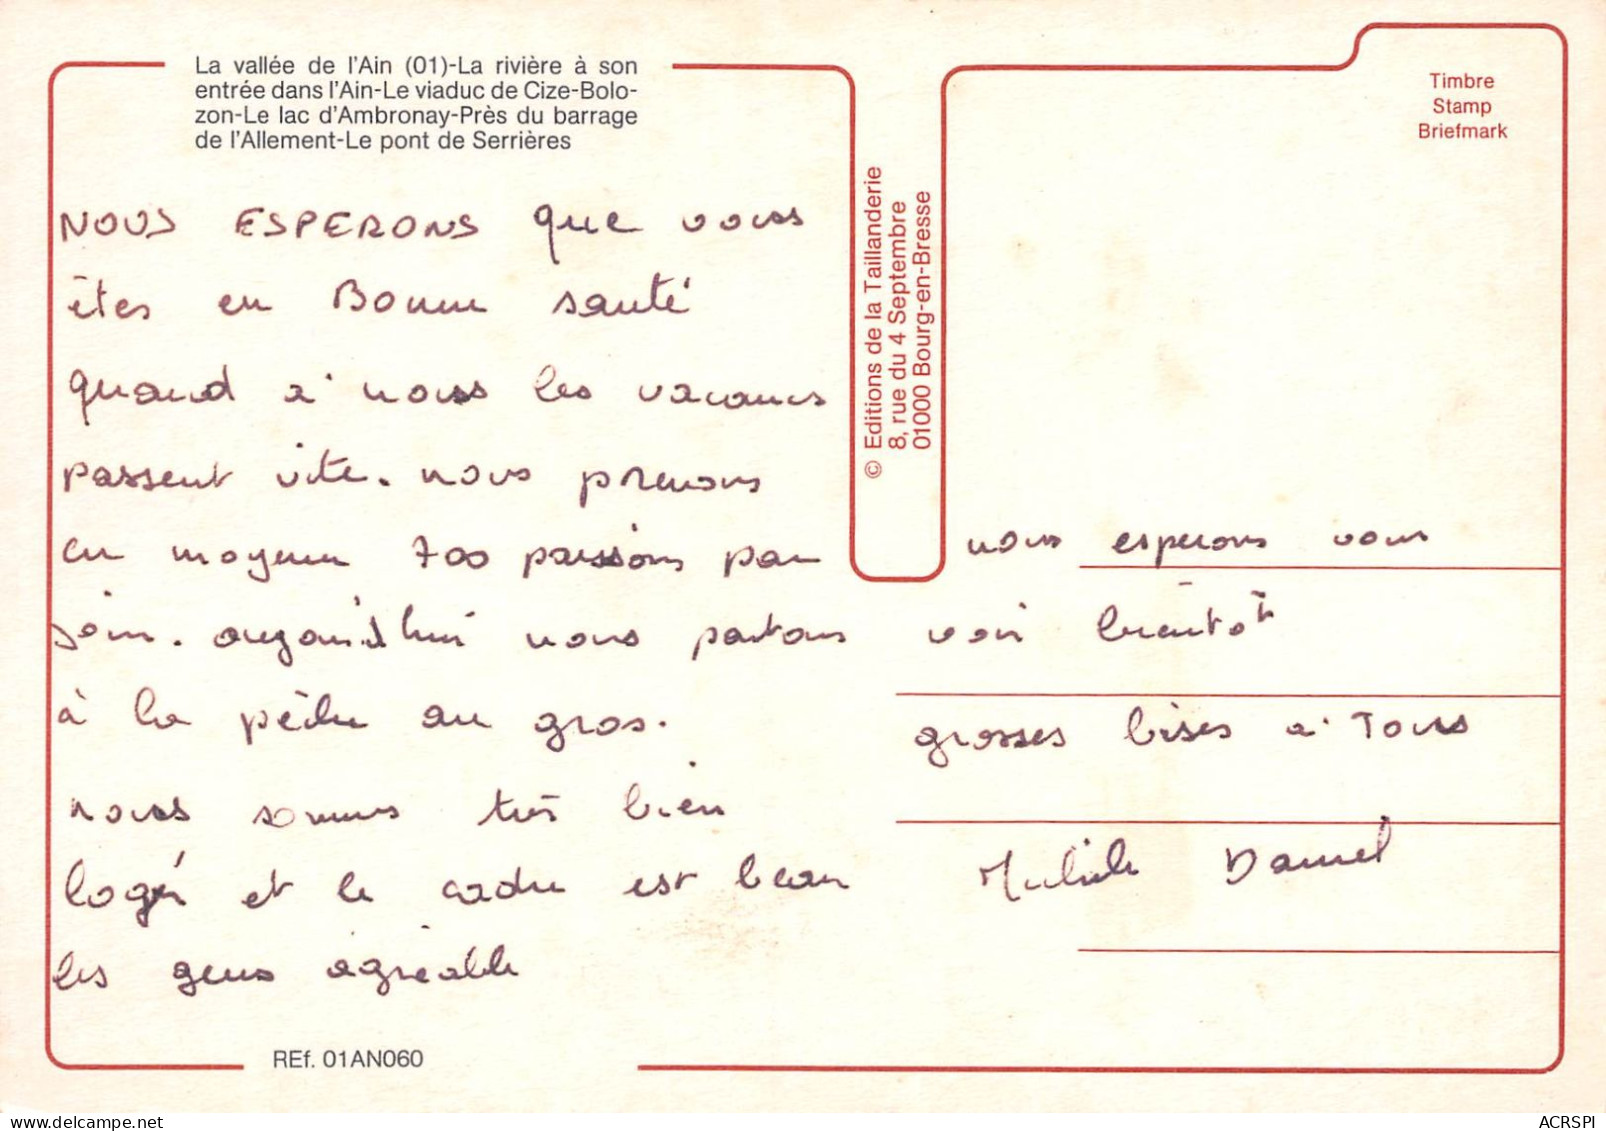 La vallée de l'Ain (01)-La rivière à son
entrée dans l'Ain-Le viaduc de Cize-Bolo-
zon-Le lac d'Ambronay-Près du barrage
de l'Allement-Le pont de Serrières
NOUS ESPERONS que vous
êtes en Bonne santé
quand à nous les vacances
passent vite. nous prenons
en moyenne 700 poissons par
jour. aujourd'hui nous partons
à la pêche au gros.
nous sommes très bien
logés et le cadre est beau
les gens agréable
REf. 01AN060
© Editions de la Taillanderie
8, rue du 4 Septembre
01000 Bourg-en-Bresse
Timbre
Stamp
Briefmark
nous esperons vous
voir bientôt
grosses bises a' Tous
Michèle Daniel
ACRSPI